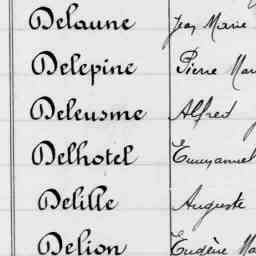 Delaune Jean Marie
Delepine Pierre
Deleusme Alfred
Delhotel Emmanuel
Delille Auguste
Delion Eugène